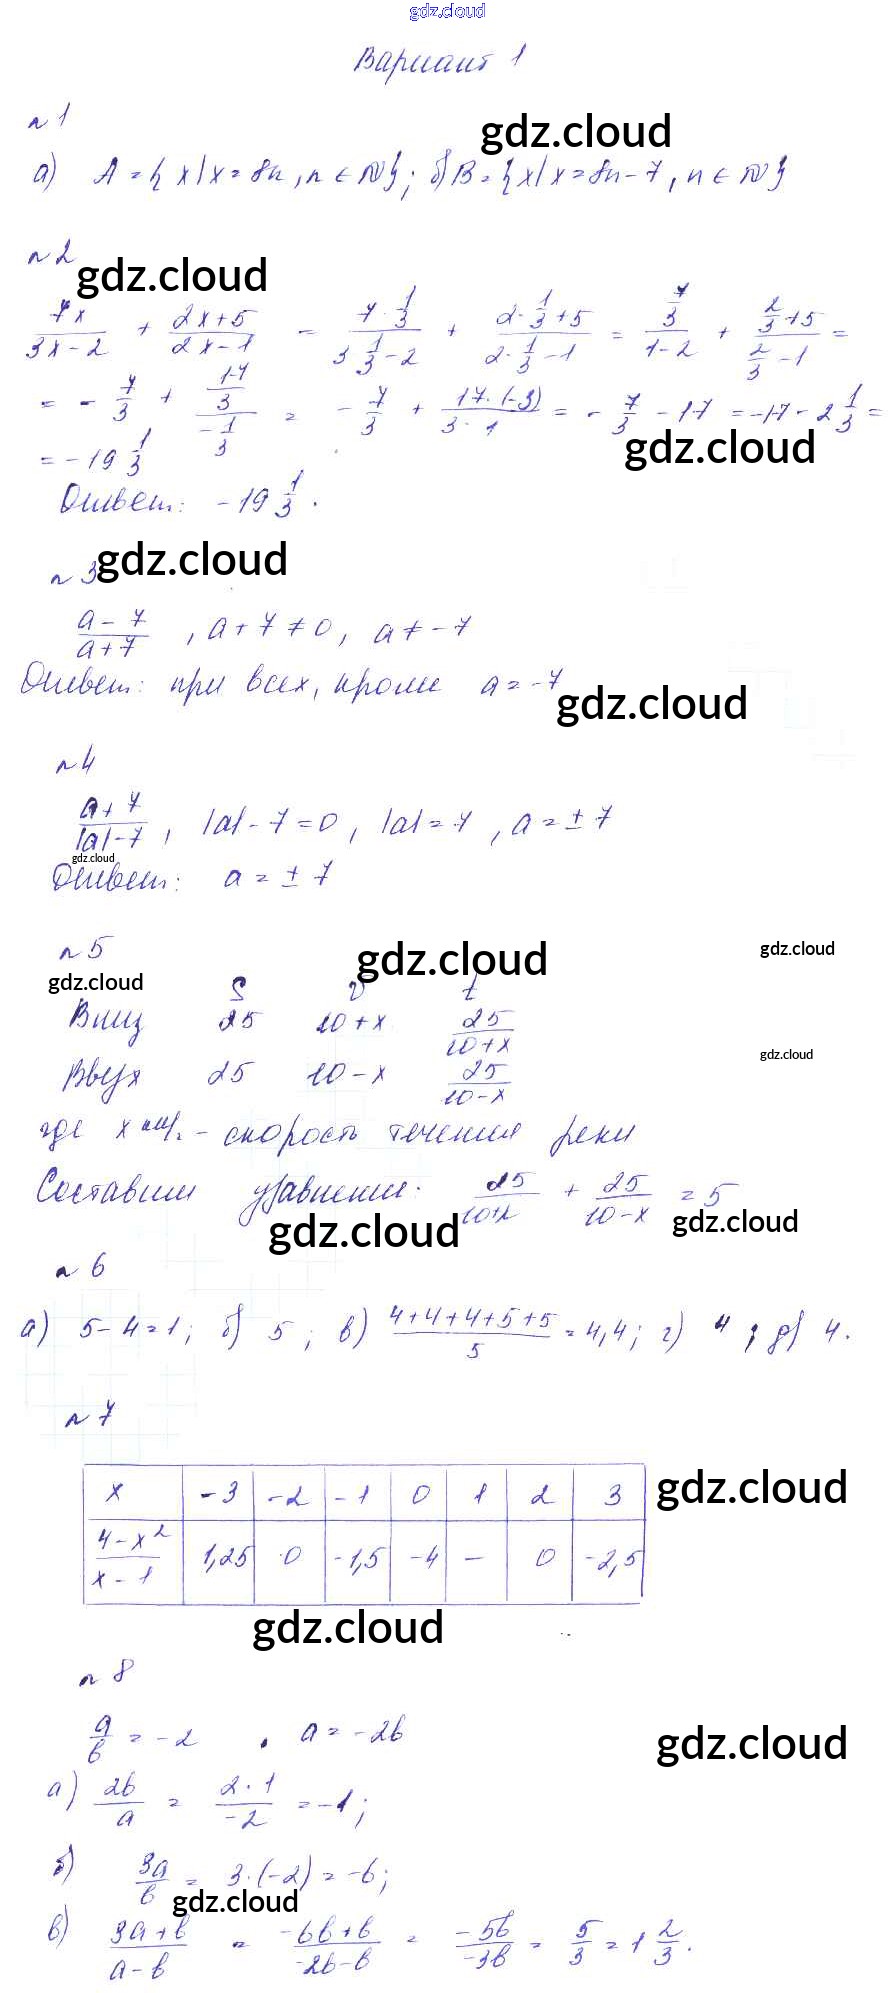 gdz.cloud
Вариант 1
n 1
gdz.cloud
а) A = { x | x = 8n, n ∈ N }; б) B = { x | x = 8n - 7, n ∈ N }
n 2
gdz.cloud
7x/(3x - 2) + (2x + 5)/(2x - 1) = (7 · 1/3)/(3 1/3 - 2) + (2 · 1/3 + 5)/(2 · 1/3 - 1) = (7/3)/(1 - 2) + (2/3 + 5)/(2/3 - 1) =
= - 7/3 + (17/3)/(-1/3) = - 7/3 + (17 · (-3))/(3 · 1) = - 7/3 - 17 = -17 - 2 1/3 =
gdz.cloud
= - 19 1/3
Ответ: - 19 1/3.
gdz.cloud
n 3
(a - 7)/(a + 7), a + 7 ≠ 0, a ≠ - 7
Ответ: при всех, кроме a = - 7
gdz.cloud
n 4
(a + 7)/(|a| - 7), |a| - 7 = 0, |a| = 7, a = ± 7
gdz.cloud
Ответ: a = ± 7
n 5
gdz.cloud
gdz.cloud
gdz.cloud
S v t
Вниз 25 10 + x 25/(10 + x)
gdz.cloud
Вверх 25 10 - x 25/(10 - x)
где x км/ч - скорость течения реки
Составим уравнение: 25/(10 + x) + 25/(10 - x) = 5
gdz.cloud
gdz.cloud
n 6
а) 5 - 4 = 1; б) 5; в) (4 + 4 + 4 + 5 + 5)/5 = 4,4; г) 4; д) 4.
n 7
x -3 -2 -1 0 1 2 3
gdz.cloud
(4 - x²)/(x - 1) 1,25 0 -1,5 -4 — 0 -2,5
gdz.cloud
n 8
a/b = -2, a = -2b
gdz.cloud
а) 2b/a = (2 · 1)/(-2) = -1;
б) 3a/b = 3 · (-2) = -6;
gdz.cloud
в) (3a + b)/(a - b) = (-6b + b)/(-2b - b) = (-5b)/(-3b) = 5/3 = 1 2/3.